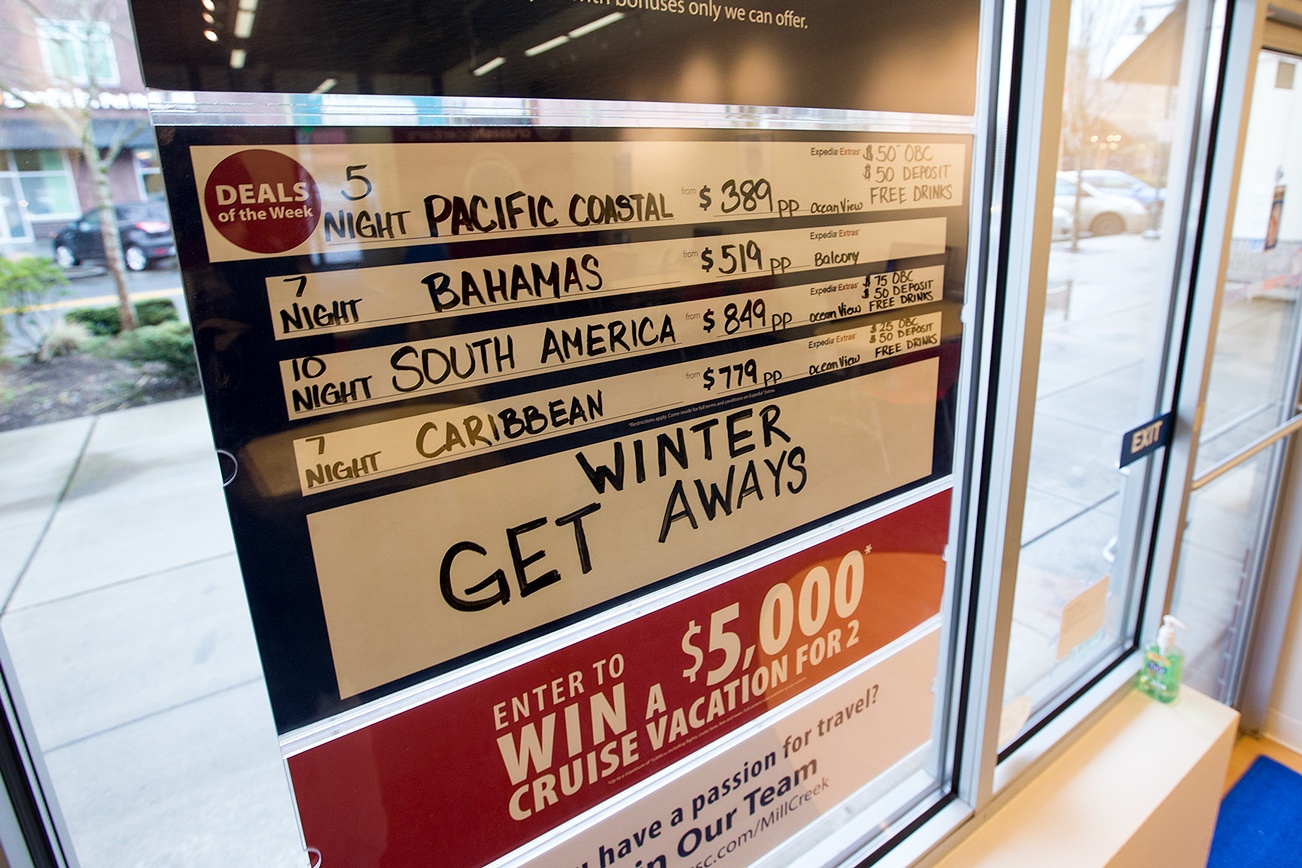 with bonuses only we can offer.
DEALS
of the Week
5
NIGHT PACIFIC COASTAL from $389 pp Ocean View Expedia Extras $50 OBC
$50 DEPOSIT
FREE DRINKS
7
NIGHT BAHAMAS from $519 pp Balcony Expedia Extras
10
NIGHT SOUTH AMERICA from $849 pp Ocean View Expedia Extras $75 OBC
$50 DEPOSIT
FREE DRINKS
7
NIGHT CARIBBEAN from $779 pp Ocean View Expedia Extras $25 OBC
$50 DEPOSIT
FREE DRINKS
*Restrictions apply. Come inside for full terms and conditions on Expedia Extras.
WINTER
GET AWAYS
ENTER TO
WIN A $5,000*
CRUISE VACATION FOR 2
have a passion for travel?
in Our Team
sc.com/MillCreek
EXIT